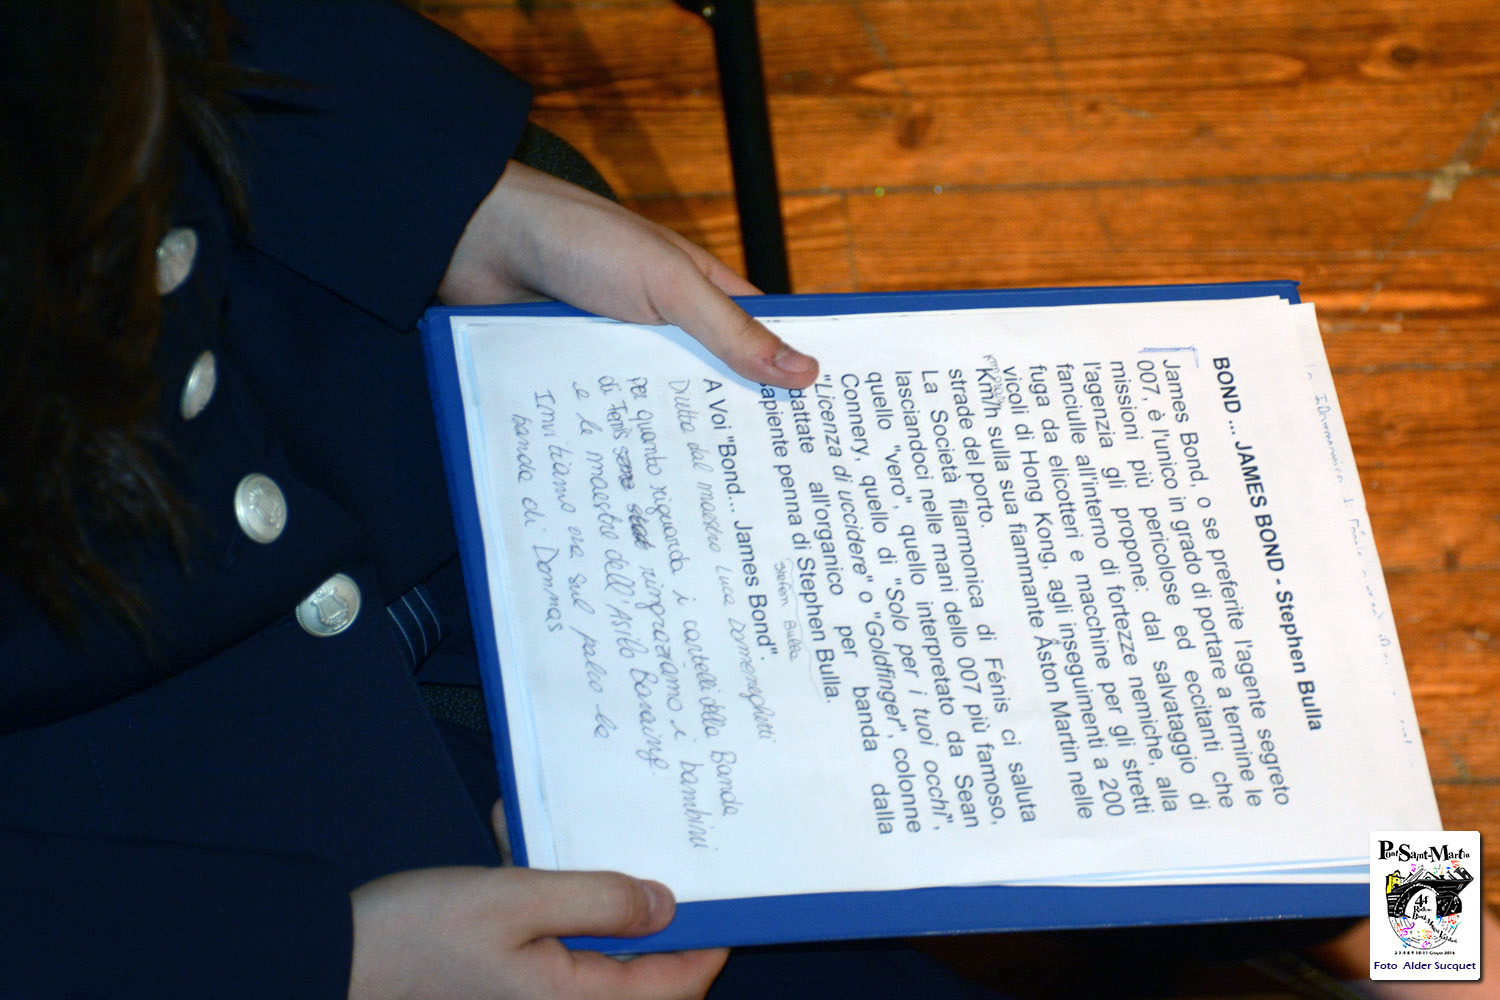 BOND ... JAMES BOND - Stephen Bulla
James Bond, o se preferite l'agente segreto
007, è l'unico in grado di portare a termine le
missioni più pericolose ed eccitanti che
l'agenzia gli propone: dal salvataggio di
fanciulle all'interno di fortezze nemiche, alla
fuga da elicotteri e macchine per gli stretti
vicoli di Hong Kong, agli inseguimenti a 200
Km/h sulla sua fiammante Aston Martin nelle
strade del porto.
La Società filarmonica di Fénis ci saluta
lasciandoci nelle mani dello 007 più famoso,
quello "vero", quello interpretato da Sean
Connery, quello di "Solo per i tuoi occhi",
"Licenza di uccidere" o "Goldfinger", colonne
adattate all'organico per banda dalla
sapiente penna di Stephen Bulla.
Stefen Bulla
A Voi "Bond... James Bond".
Dirette dal maestro Luca Domeneghetti
per quanto riguarda i cartelli della Banda
di Fenis ringraziamo i bambini
e le maestre dell'Asilo
Invitiamo ora sul palco la
banda di Donnas
Pont Saint-Martin
Foto Alder Sucquet